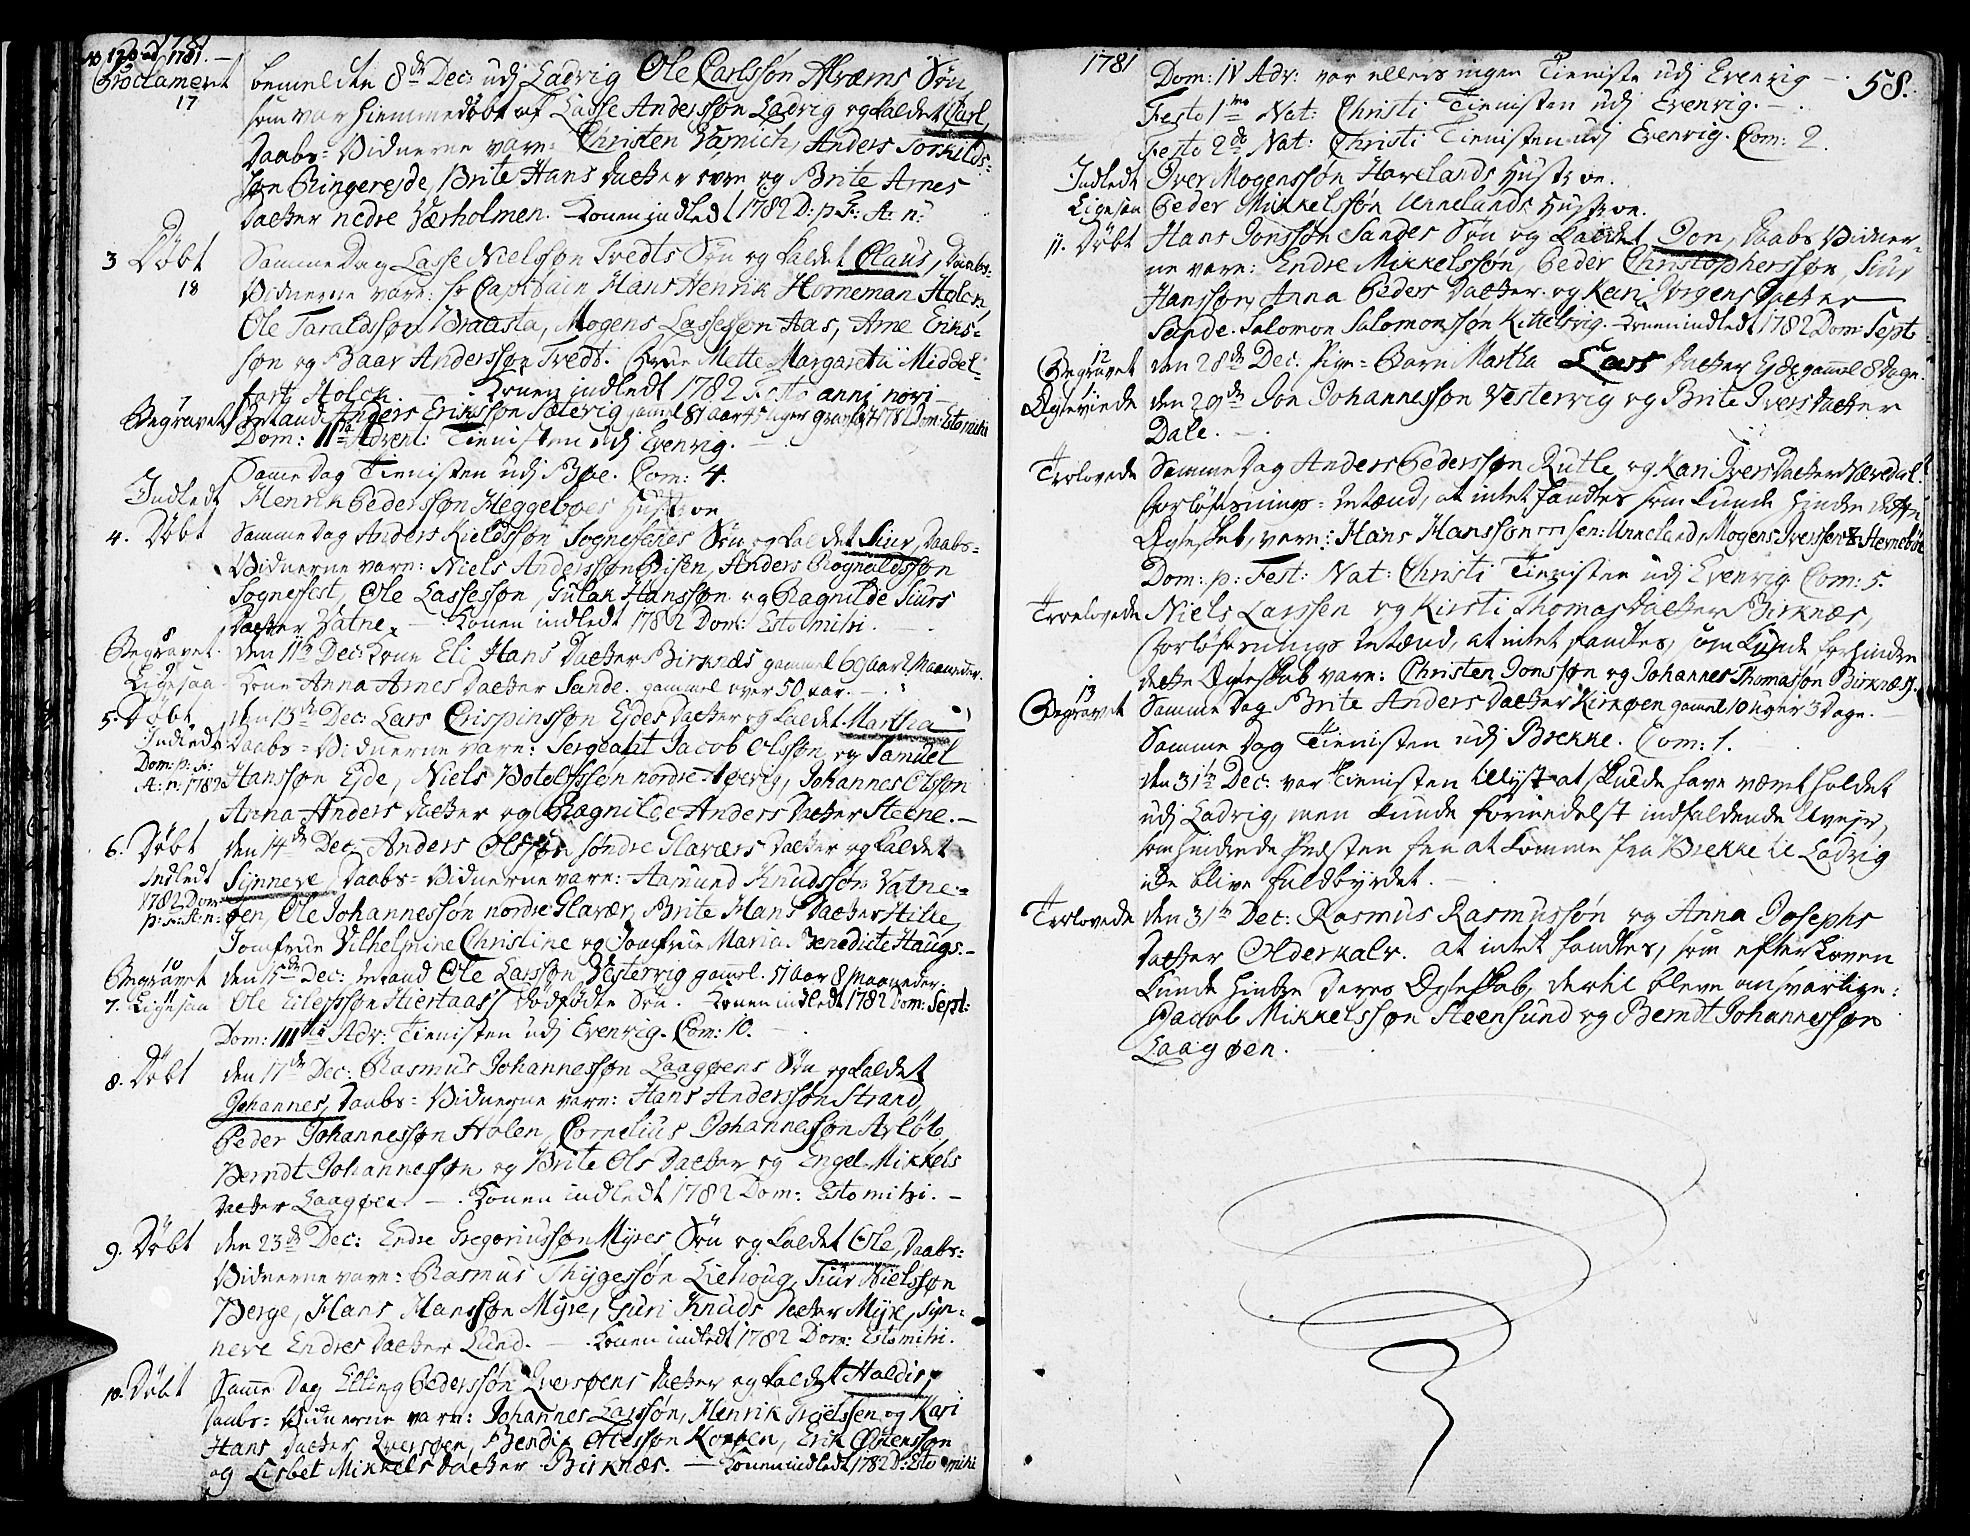 1781.
bemeldte 8de Dec: udj Ladvig Ole Carlssøn Aræms Søn
17
som var hiemmedøbt af Lasse Anderssøn Ladvig og kaldet Carl,
Daabs-Vidnerne vare: Christen Værnich, Anders Torkilds-
søn Ringereide, Brite Hans Datter øvre og Brite Arnes
Datter nedre Værholmen. Konen indledt 1782 D: p: F: A: n:
3 Døbt Samme Dag Lasse Nielssøn Tredts Søn og kaldet Claus, Daabs-
18
Vidnerne vare: hr Captain Hans Henrik Horneman Holch,
Ole Taraldssøn Braasta, Mogens Lassesøn Aas, Arne Eriks-
søn og Baar Anderssøn Tredt. Frue Mette Margareta Middel-
fart Holck. Konen indledt 1782 Festo anni novi
Begravet Anders Erikssøn Sælevig gamel 81 aar 1782 Dom: Estomihi
Dom: IIda Advent: Tienisten udj Evenvig.
Samme Dag Tienisten udj Bøe. Com: 4.
Indledt Henrik Pederssøn Heggeboes Hustroe
4. Døbt Samme Dag Anders Kieldssøn Sognefestes Søn og kaldet Siur, Daabs-
Vidnerne vare: Niels Anderssøn Risen, Anders Rognaldssøn
Sognefest, Ole Lassessøn, Gulak Hanssøn og Ragnilde Siurs
Datter Vatne. Konen indledt 1782 Dom: Estomihi.
8
Begravet. den 11te Dec: Kone Eli Hans Datter Birknæs gammel 69 aar 2 Maaneder.
9
Ligesaa Kone Anna Arnes Datter Sande. gammel over 50 aar.
5. Døbt den 13de Dec: Lars Crispinssøn Ejdes Datter og kaldet Martha
Indledt Daabs-Vidnerne vare: Sergeant Jacob Olssøn og Samuel
Dom: p: F:
A: n: 1782 Hanssøn Ejde, Niels Botolfssøn nordre Høevig, Johannes Olssøn
Anna Anders Datter og Ragnilde Anders Datter Steene.
6. Døbt den 14de Dec: Anders Olssøn søndre Glaværs Datter og kaldet
Indledt Synneve, Daabs-Vidnerne vare: Aamund Knudssøn Vatne-
1782 Dom
p: F: A: n: øen, Ole Johannessøn nordre Glavær, Brite Hans Datter Hille,
Jomfrue Vilhelmine Christine og Jomfrue Maria Benedicte Haugs.
10
Begravet den 15de Dec: Ole Larssøn Vestervig gamel. 51 aar 8 Maaneder.
11
7. Ligesaa Ole Ellessøn Hiertaas's dødfødte Søn. Konen indledt 1782 Dom: Sept:
Dom: IIItia Adv: Tienisten udj Evenvig. Com: 10.
8. Døbt den 17de Dec: Rasmus Johannessøn Laagøens Søn og kaldet
Johannes, Daabs-Vidnerne vare: Hans Anderssøn Strand,
Peder Johannessøn Holen, Cornelius Johannessøn Avløb,
Berndt Johannessøn og Brite Ols Datter og Engel Mikkels
Datter Laagøen. Konen indledt 1782 Dom: Estomihi.
9. Døbt den 23de Dec: Endre Gregoriussøn Myres Søn og kaldet Ole, Daabs-
Vidnerne vare: Rasmus Thygessøn Liehoug, Siur Nielssøn
Berge, Hans Hanssøn Myre, Guri Knuds Datter Myre, Syn-
neve Endres Datter Lund. Konen indledt 1782 Dom: Estomihi.
10. Døbt Samme Dag Elling Pederssøn Qversøens Datter og kaldet Haldis,
Daabs-Vidnerne vare: Johannes Larssøn, Henrik Troelssen og Kari
Hans Datter Qversøen, Bendix Olessøn Korpen, Erik Østenssøn
og Lisbet Mikkels Datter Birknæs. Konen indledt 1782 D: Estomihi
1781
58.
Dom: IV Adv: var ellers ingen Tieniste udj Evenvig
Festo 1mo Nat: Christi Tienisten udj Evenvig.
Festo 2do Nat: Christi Tienisten udj Evenvig. Com: 2.
Indledt Iver Mogenssøn Havelands Hustroe.
Ligesaa Peder Mikkelssøn Unnelands Hustroe.
11. Døbt Hans Jonssøn Sandes Søn og kaldet Jon, Daabs Vidner-
ne vare: Endre Mikkelssøn, Peder Christopherssøn, Siur
Hanssøn, Anna Peders Datter og Kari Jørgens Datter
Sande. Salomon Salomonssøn Kittelsvig. Konen indledt 1782 Dom: Sept
12
Begravet den 28de Dec. Pige-Barn Martha Lars Datter Ejde gammel 8 Dage.
Ægteviede den 29de Jon Johannessøn Vestervig og Brite Ivers Datter
Dale.
Trolovede Samme Dag Anders Pederssøn Rutle og Kari Ivers Datter Nævedal.
Forløftnings-Mænd, at intet fandtes som kunde hindre dette
Ægteskab, vare: Hans Hanssøn sen: Unneland, Mogens Iverssen Hernebøe
Dom: p: Fest: Nat: Christi Tienisten udj Evenvig Com: 5.
Troelovede Niels Larssen og Kirsti Thomas Datter Birknæs,
Forløftnings Mænd, at intet fandtes, som kunde forhindre
dette Ægteskab vare: Christen Jonssøn og Johannes Thomassøn Birknæs.
13
Begravet Samme Dag Brite Anders Datter Kirkøen gamel 10 uger 3 Dage.
Samme Dag Tienisten udj Brekke. Com: 1.
den 31te Dec: var Tienisten tillyst at skulde have været holdet
udj Ladvig, men kunde formedelst indfaldende Uveir,
som hindrede Præsten fra at komme fra Brekke til Ladvig
ikke blive fuldbyrdet.
Trolovede den 31te Dec: Rasmus Rasmussøn og Anna Josephs
Datter Olderkalv. at intet fandtes, som efter Loven
kunde hindre deres Ægteskab, dertil bleve ansvarlige:
Jacob Mikkelssøn Steensund og Berndt Johannessøn
Laagøen.